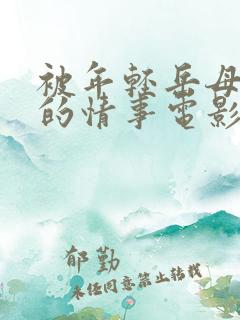 被年轻岳母
的情事电影
郁勤
未经同意禁止转载